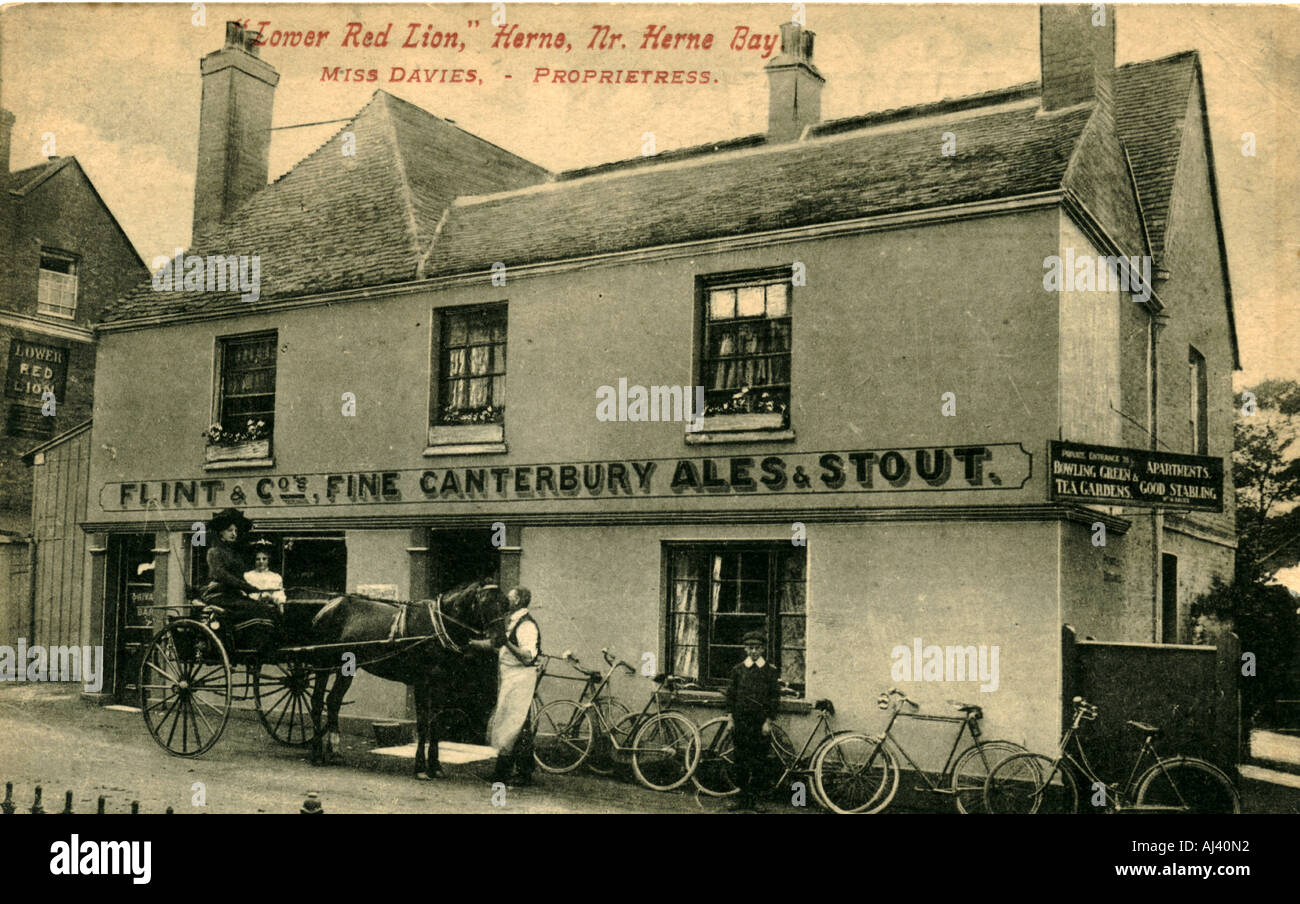 "Lower Red Lion," Herne, Nr. Herne Bay
MISS DAVIES, - PROPRIETRESS.
LOWER
RED
LION
FLINT & Co's, FINE CANTERBURY ALES & STOUT.
PRIVATE ENTRANCE TO
BOWLING GREEN & APARTMENTS.
TEA GARDENS, GOOD STABLING
BAR
alamy
alamy
Image ID: AJ40N2
www.alamy.com